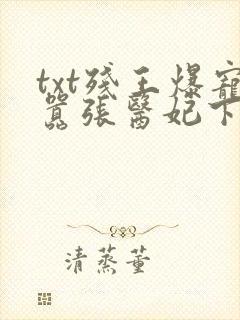 txt殘王爆寵
囂張醫妃下
清蒸董